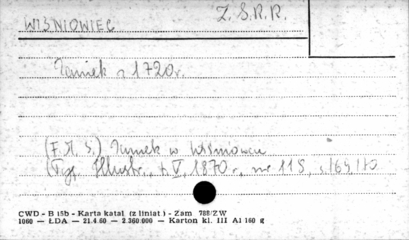 Z.S.R.R.
WIŚNIOWIEC
Zamek z 1720r.
(F.K.S.) Zamek w Wiśniowcu
(Tyg. Illustr., t. V, 1870r., nr 115, s. 164/70
CWD - B 15b - Karta katal. (z liniat) - Zam 788/ZW
1060 — ŁDA — 21.4.60 — 2.360.000 — Karton kl. III A1 160 g